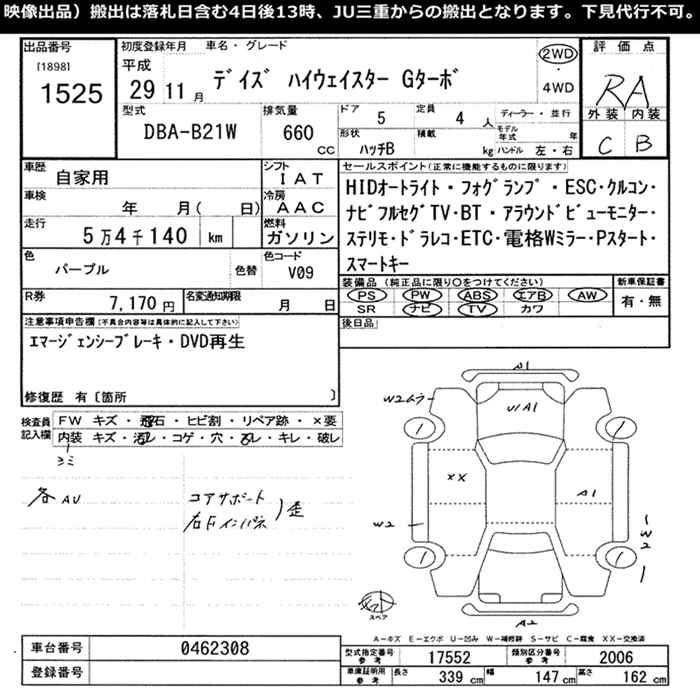 映像出品）搬出は落札日含む4日後13時、JU三重からの搬出となります。下見代行不可。
出品番号 初度登録年月 車名・グレード 評価点
[1898] 平成 2WD
1525 29 11月 デイズ ハイウェイスター Gターボ ・ 4WD RA
型式 排気量 ドア 5 定員 4 人 ディーラー・並行 外装 内装
DBA-B21W 660 cc 形状 ハッチB 積載 kg モデル年式 年 ハンドル 左・右 C B
車歴 自家用 シフト IAT セールスポイント(正常に機能するものに限ります)
車検 年 月( 日) 冷房 AAC HIDオートライト・フォグランプ・ESC・クルコン・
ナビフルセグTV・BT・アラウンドビューモニター・
走行 5万4千140 km 燃料 ガソリン ステリモ・ドラレコ・ETC・電格Wミラー・Pスタート・
スマートキー
色 パープル 色替 色コード V09
装備品(純正品に限り○をつけてください) 新車保証書
R券 7,170円 名変通知期限 月 日 PS PW ABS エアB AW 有・無
SR ナビ TV カワ
注意事項申告欄(不具合内容等は具体的に記入して下さい) 後日品
エマージェンシーブレーキ・DVD再生
修復歴 有〔箇所 〕
検査員 FW キズ・飛石・ヒビ割・リペア跡・×要
記入欄 内装 キズ・汚レ・コゲ・穴・スレ・キレ・破レ
シミ
各AU コアサポート
右Fインパネ )歪
A1
W2ムラ U/A1
XX A1
W2 W2
スペア
A2
A－キズ E－エクボ U－凹み W－補修跡 S－サビ C－腐食 XX－交換済
車台番号 0462308 型式指定番号 参考 17552 類別区分番号 参考 2006
登録番号 車庫証明用 参考 長さ 339 cm 幅 147 cm 高さ 162 cm